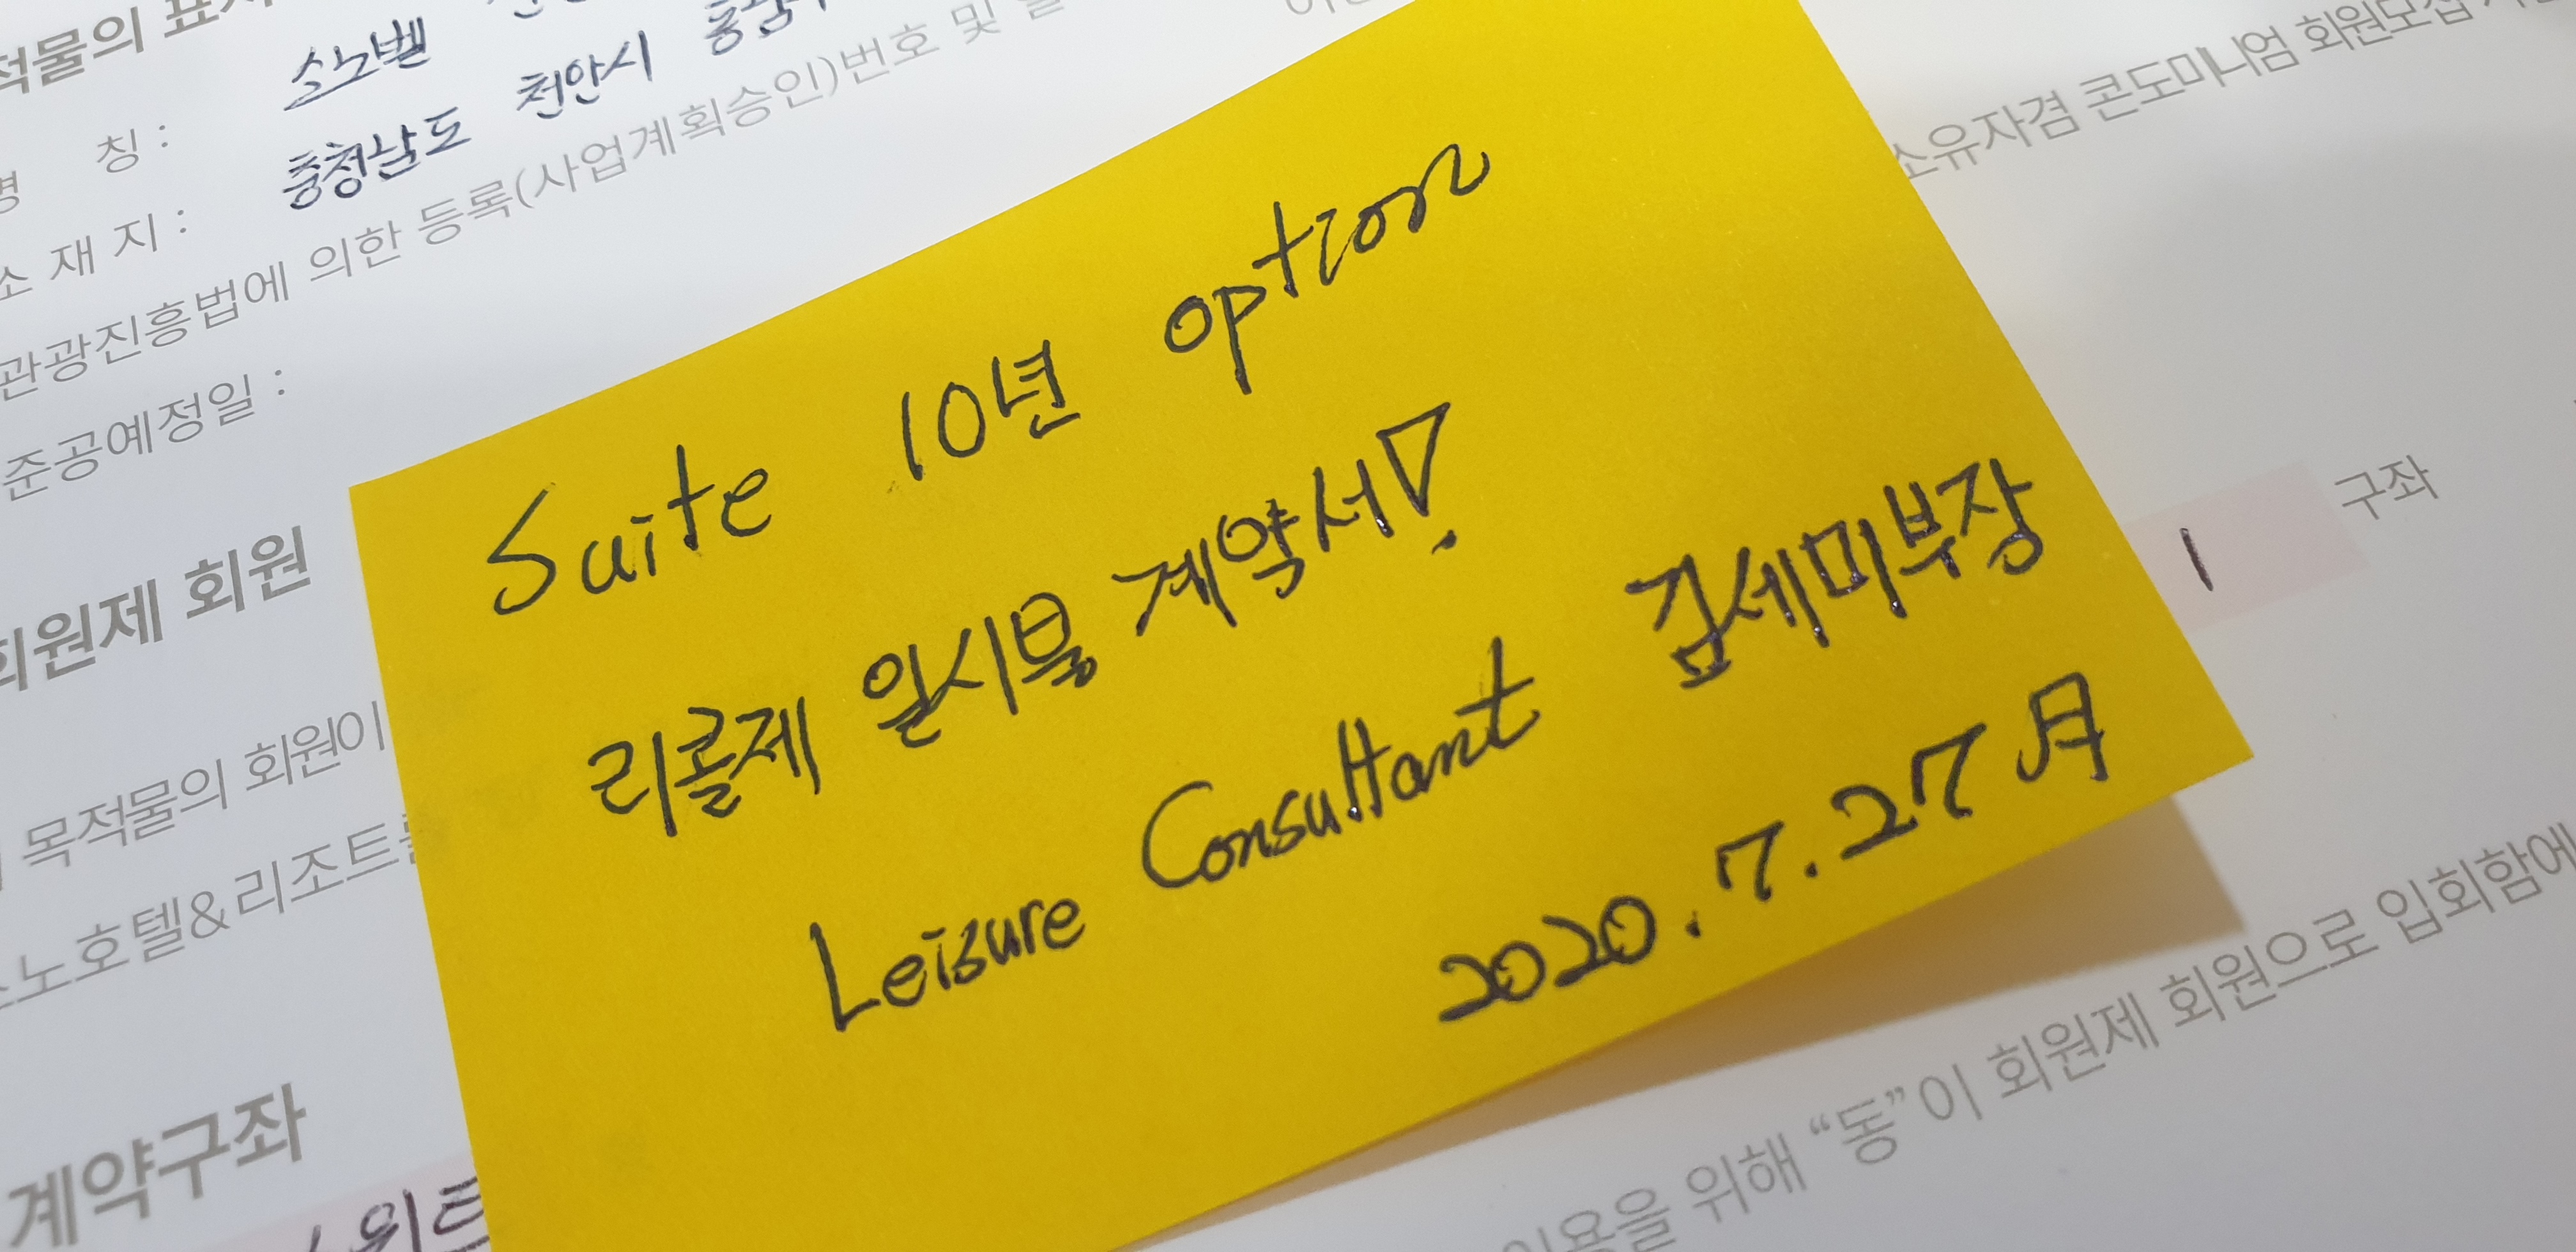 적물의 표시
칭 : 소노벨
소 재 지 : 충청남도 천안시
관광진흥법에 의한 등록(사업계획승인)번호 및
준공예정일 :
소유자겸 콘도미니엄 회원모집
회원제 회원
목적물의 회원이
노호텔&리조트
계약구좌
스위트
1 구좌
Suite 10년 option
리콜제 일시불 계약서!
Leisure Consultant 김세미부장
2020.7.27 月
이용을 위해 “동”이 회원제 회원으로 입회함에